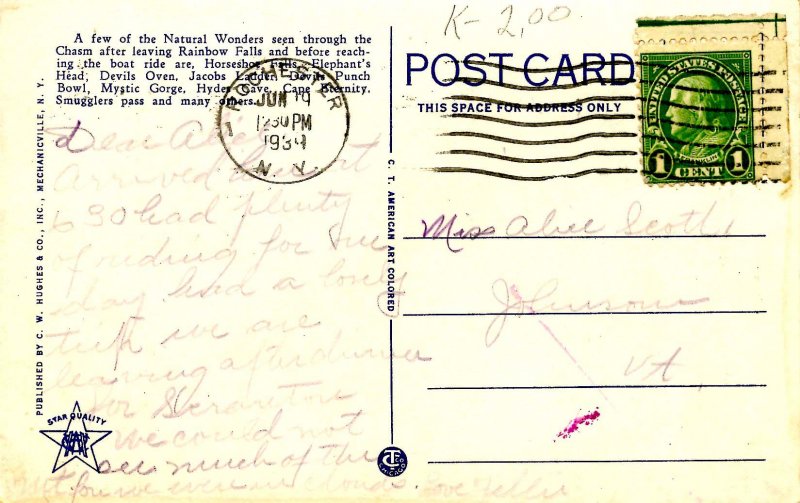 K- 2,00
A few of the Natural Wonders seen through the
Chasm after leaving Rainbow Falls and before reach-
ing the boat ride are, Horseshoe Falls, Elephant's
Head, Devils Oven, Jacobs Ladder, Devils Punch
Bowl, Mystic Gorge, Hydes Cave, Cape Eternity.
Smugglers pass and many others.
POST CARD
THIS SPACE FOR ADDRESS ONLY
ROCHESTER
1
JUN 19
12 30 PM
1934
N. Y.
UNITED STATES POSTAGE
FRANKLIN
1 CENT 1
Dear Alice
Arrived about
6 30 had plenty
of riding for one
day had a lovely
trip we are
leaving after dinner
for Scranton
We could not
see much of the
for we were in clouds. Love
Miss Alice Scott
Johnson
Vt.
PUBLISHED BY C. W. HUGHES & CO., INC., MECHANICVILLE, N. Y.
C. T. AMERICAN ART COLORED
STAR QUALITY
CHICAGO